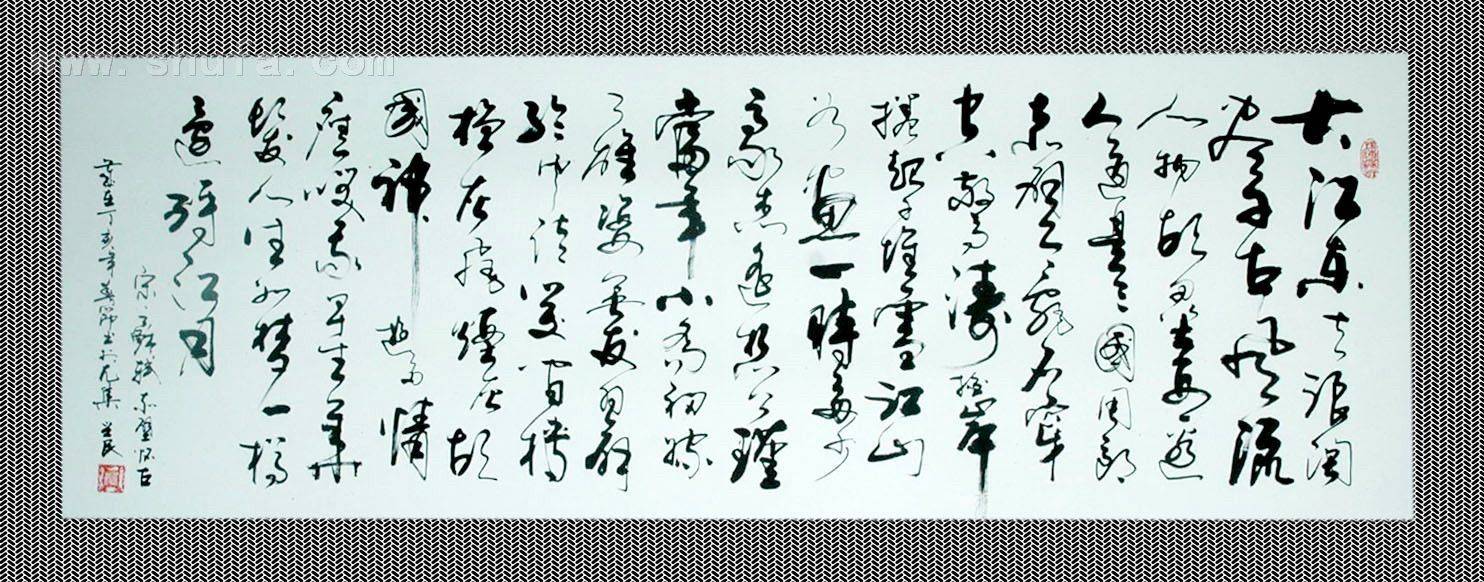 www.shufa.com
大江東去浪淘
盡千古風流
人物故壘西邊
人道是三國周郎
赤壁亂石穿
空驚濤拍岸
捲起千堆雪江山
如畫一時多少
豪杰遙想公瑾
當年小喬初嫁
了雄姿英發羽扇
綸巾談笑間檣
櫓灰飛煙滅故
國神遊多情
應笑我早生華
髮人生如夢一樽
還酹江月
宋蘇軾赤壁懷古
歲在丁亥年書於